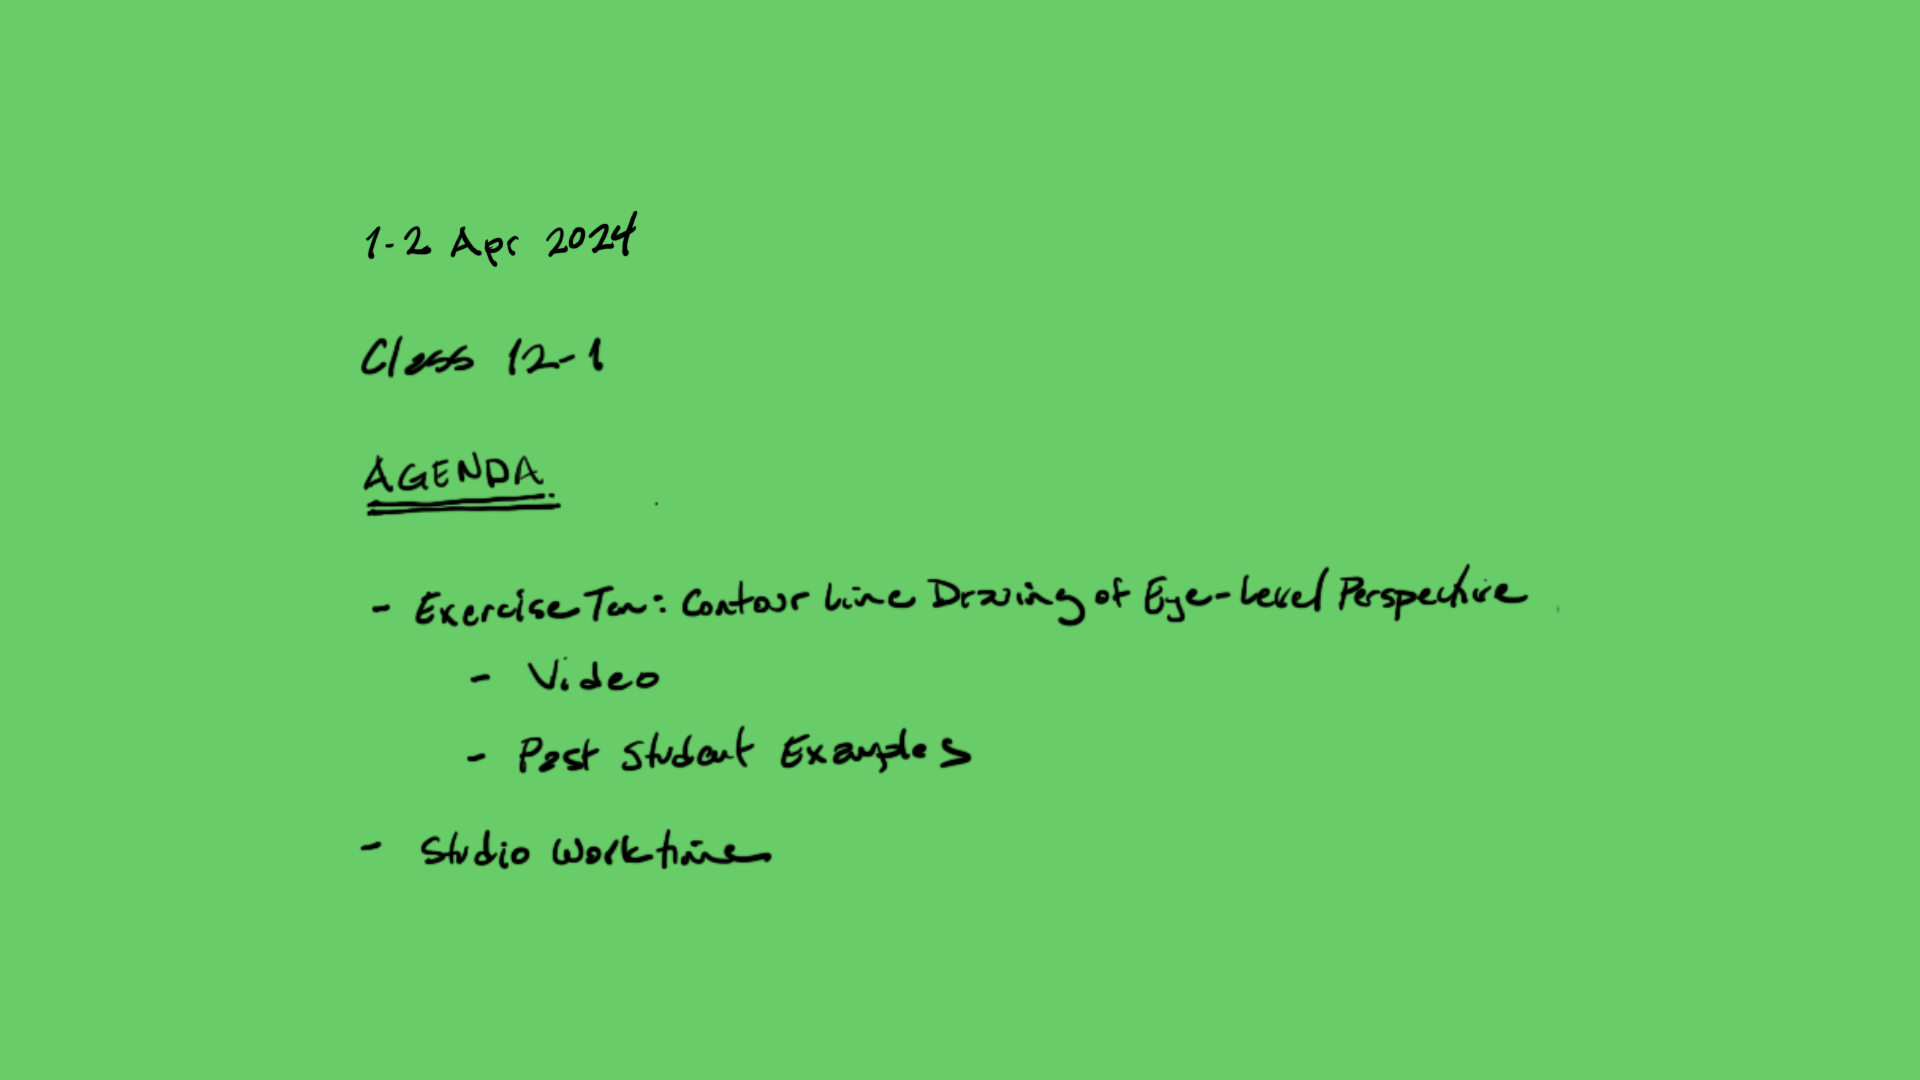 1-2 Apr 2024
Class 12-1
AGENDA
- Exercise Ten: Contour Line Drawing of Eye-Level Perspective
- Video
- Past Student Examples
- Studio Worktime